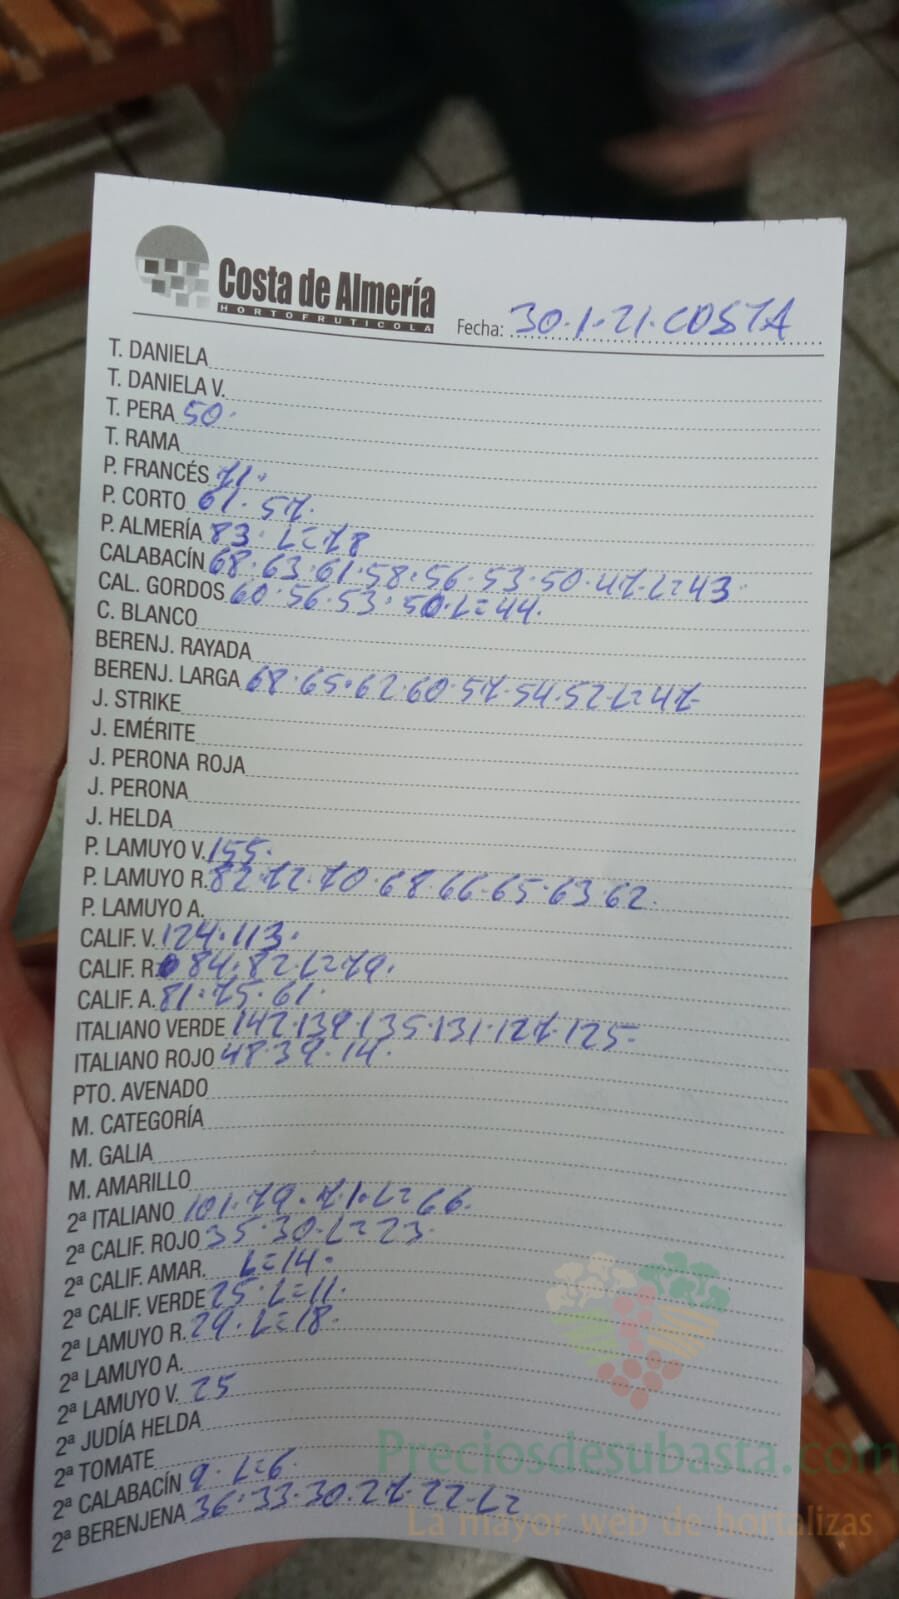 Costa de Almería
HORTOFRUTICOLA
Fecha: 30·1·21·COSTA
T. DANIELA
T. DANIELA V.
T. PERA 50·
T. RAMA
P. FRANCÉS 71·
P. CORTO 61· 57·
P. ALMERÍA 83· L=78
CALABACÍN 68·63·61·58·56·53·50·47·L=43·
CAL. GORDOS 60·56·53·50·L=44·
C. BLANCO
BERENJ. RAYADA
BERENJ. LARGA 68·65·62·60·57·54·52·L=47·
J. STRIKE
J. EMÉRITE
J. PERONA ROJA
J. PERONA
J. HELDA
P. LAMUYO V. 155·
P. LAMUYO R. 82·72·70·68·66·65·63·62·
P. LAMUYO A.
CALIF. V. 124·113·
CALIF. R. 84·82·L=79·
CALIF. A. 81·75·61·
ITALIANO VERDE 142·139·135·131·127·125·
ITALIANO ROJO 48·39·14·
PTO. AVENADO
M. CATEGORÍA
M. GALIA
M. AMARILLO
2ª ITALIANO 101·79·71·L=66·
2ª CALIF. ROJO 35·30·L=23·
2ª CALIF. AMAR. L=14·
2ª CALIF. VERDE 25·L=11·
2ª LAMUYO R. 29·L=18·
2ª LAMUYO A.
2ª LAMUYO V. 25
2ª JUDÍA HELDA
2ª TOMATE
2ª CALABACÍN 9·L=6·
2ª BERENJENA 36·33·30·27·22·L=
Preciosdesubasta.com
La mayor web de hortalizas